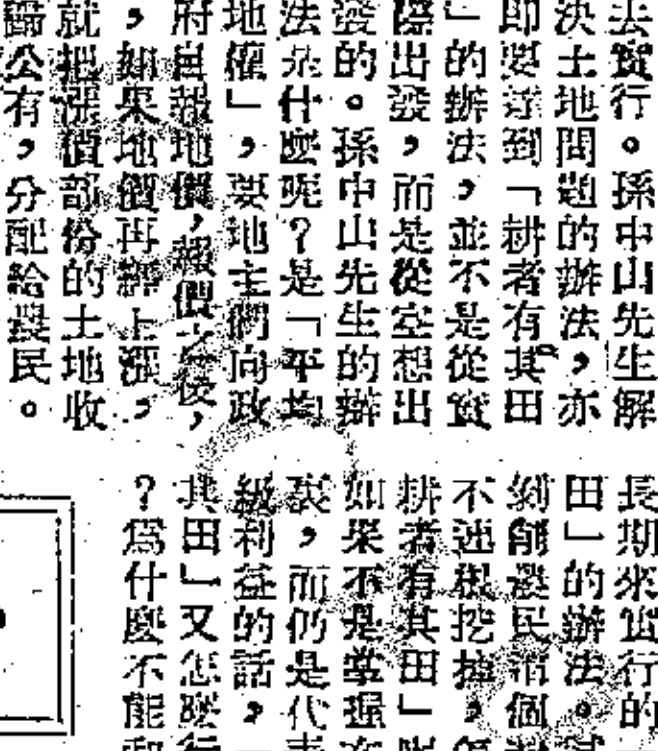 去實行。孫中山先生解
決土地問題的辦法，亦
即要達到「耕者有其田
」的辦法，並不是從實
際出發，而是從空想出
發的。孫中山先生的辦
法是什麼呢？是「平均
地權」，要地主們向政
府自報地價，報價之後，
，如果地價再經上漲，
就把漲價部份的土地收
歸公有，分配給農民。
長期來實行的
田」的辦法。
剝削農民這個
不連根挖掉，
耕者有其田」
如果不是掌握
裏，而仍是代表
級利益的話，
其田」又怎麼行
？爲什麼不能